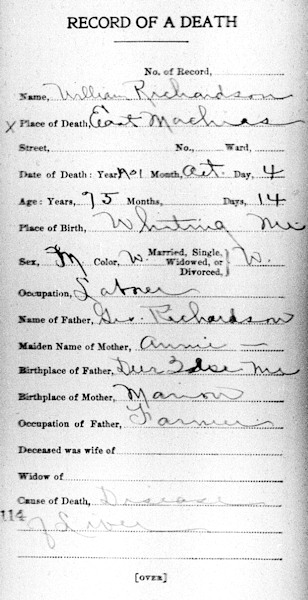 RECORD OF A DEATH
No. of Record,
Name, William Richardson
x Place of Death, East Machias
Street, No., Ward,
Date of Death: Year, 1901 Month, Oct. Day, 4
Age: Years, 75 Months, Days, 14
Place of Birth, Whiting Me
Sex, M Color, W. Married, Single, Widowed, or Divorced, } W.
Occupation, Laborer
Name of Father, Geo. Richardson
Maiden Name of Mother, Annie —
Birthplace of Father, Deer Isle Me
Birthplace of Mother, Marion
Occupation of Father, Farmer
Deceased was wife of
Widow of
Cause of Death, Disease
114 of Liver
[OVER]